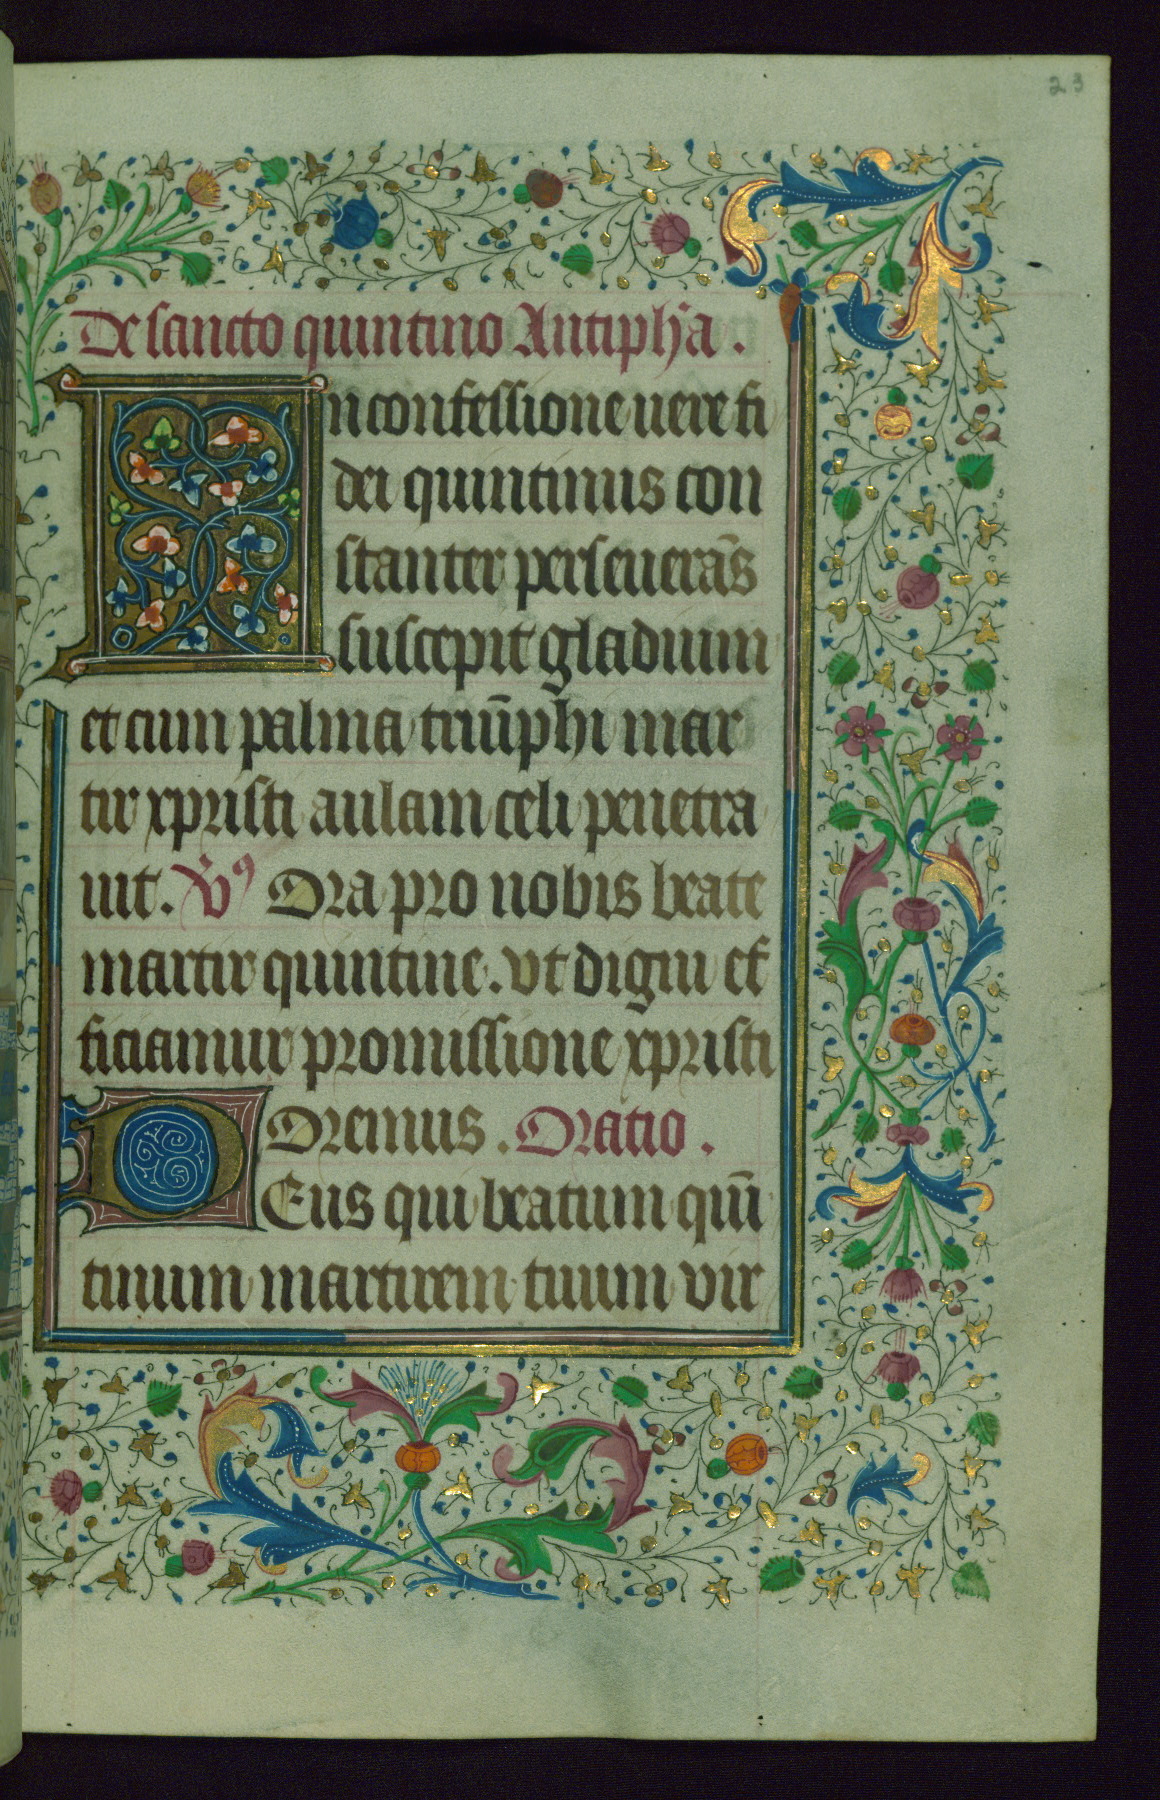 23
De sancto quintino Antiph'a.
In confessione vere fi
dei quintinus con
stanter perseuerãs
suscepit gladium
et cum palma triũphi mar
tir xpristi aulam celi penetra
uit. V̾ Ora pro nobis beate
martir quintine. vt digni ef
ficiamur promissione xpristi
Oremus. Oratio.
DEus qui beatum quĩ
tinum martirem tuum vir